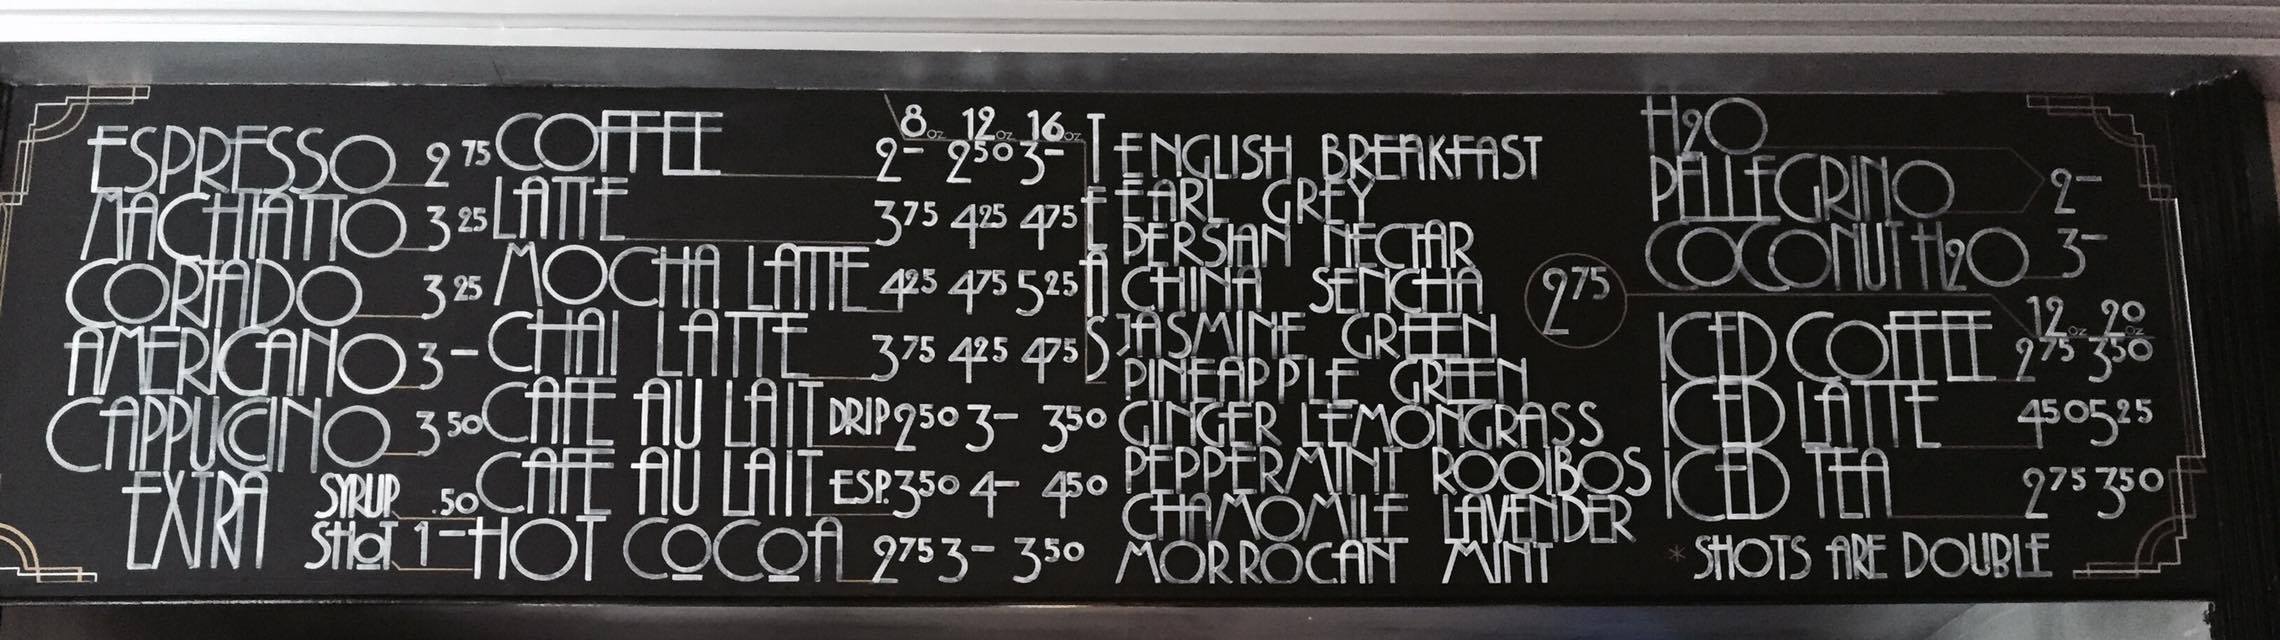 ESPRESSO 2 75
MACHIATTO 3 25
CORTADO 3 25
AMERICANO 3 -
CAPPUCCINO 3 50
EXTRA SYRUP .50
SHOT 1 -
8 oz 12 oz 16 oz
COFFEE 2 - 2 50 3 -
LATTE 3 75 4 25 4 75
MOCHA LATTE 4 25 4 75 5 25
CHAI LATTE 3 75 4 25 4 75
CAFE AU LAIT DRIP 2 50 3 - 3 50
CAFE AU LAIT ESP. 3 50 4 - 4 50
HOT COCOA 2 75 3 - 3 50
TEAS
ENGLISH BREAKFAST
EARL GREY
PERSIAN NECTAR
CHINA SENCHA
JASMINE GREEN
PINEAPPLE GREEN
GINGER LEMONGRASS
PEPPERMINT ROOIBOS
CHAMOMILE LAVENDER
MORROCAN MINT
2 75
H2O
PELLEGRINO 2 -
COCONUT H2O 3 -
12 oz 20 oz
ICED COFFEE 2 75 3 50
ICED LATTE 4 50 5 25
ICED TEA 2 75 3 50
* SHOTS ARE DOUBLE